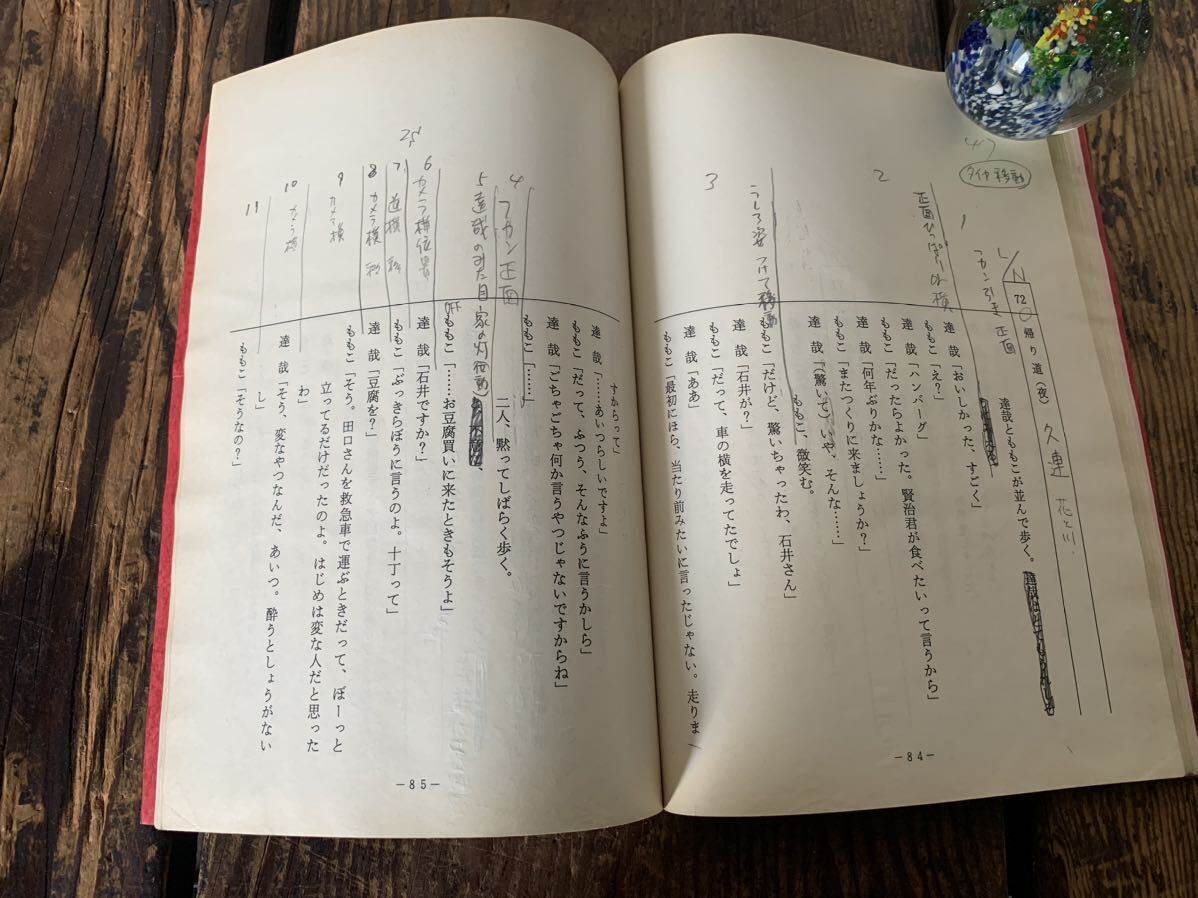 47
タイヤ移動
L/N
72 帰り道(夜)
久連
花と川
1
フカン引き 正面
達哉とももこが並んで歩く。
達 哉「おいしかった、すごく」
ももこ「え?」
2
正面ひっぱり 横
達 哉「ハンバーグ」
ももこ「だったらよかった。賢治君が食べたいって言うから」
達 哉「何年ぶりかな……」
ももこ「またつくりに来ましょうか?」
達 哉「(驚いて)いや、そんな……」
ももこ、微笑む。
3
うしろ姿 つけて移動
ももこ「だけど、驚いちゃったわ、石井さん」
達 哉「石井が?」
ももこ「だって、車の横を走ってたでしょ」
達 哉「ああ」
ももこ「最初にほら、当たり前みたいに言ったじゃない。走りま
—84—
すからって」
達 哉「……あいつらしいですよ」
ももこ「だって、ふつう、そんなふうに言うかしら」
達 哉「ごちゃごちゃ何か言うやつじゃないですからね」
ももこ「……」
4
フカン正面
二人、黙ってしばらく歩く。
5
達哉のみた目 家の灯
OFF
ももこ「……お豆腐買いに来たときもそうよ」
6
カメラ横位置
達 哉「石井ですか?」
25
7
ももこ「ぶっきらぼうに言うのよ。十丁って」
8
カメラ横
達 哉「豆腐を?」
9
カメラ横
ももこ「そう。田口さんを救急車で運ぶときだって、ぼーっと
立ってるだけだったのよ。はじめは変な人だと思った
わ」
10
カメラ横
達 哉「そう、変なやつなんだ、あいつ。酔うとしょうがない
し」
11
ももこ「そうなの?」
—85—